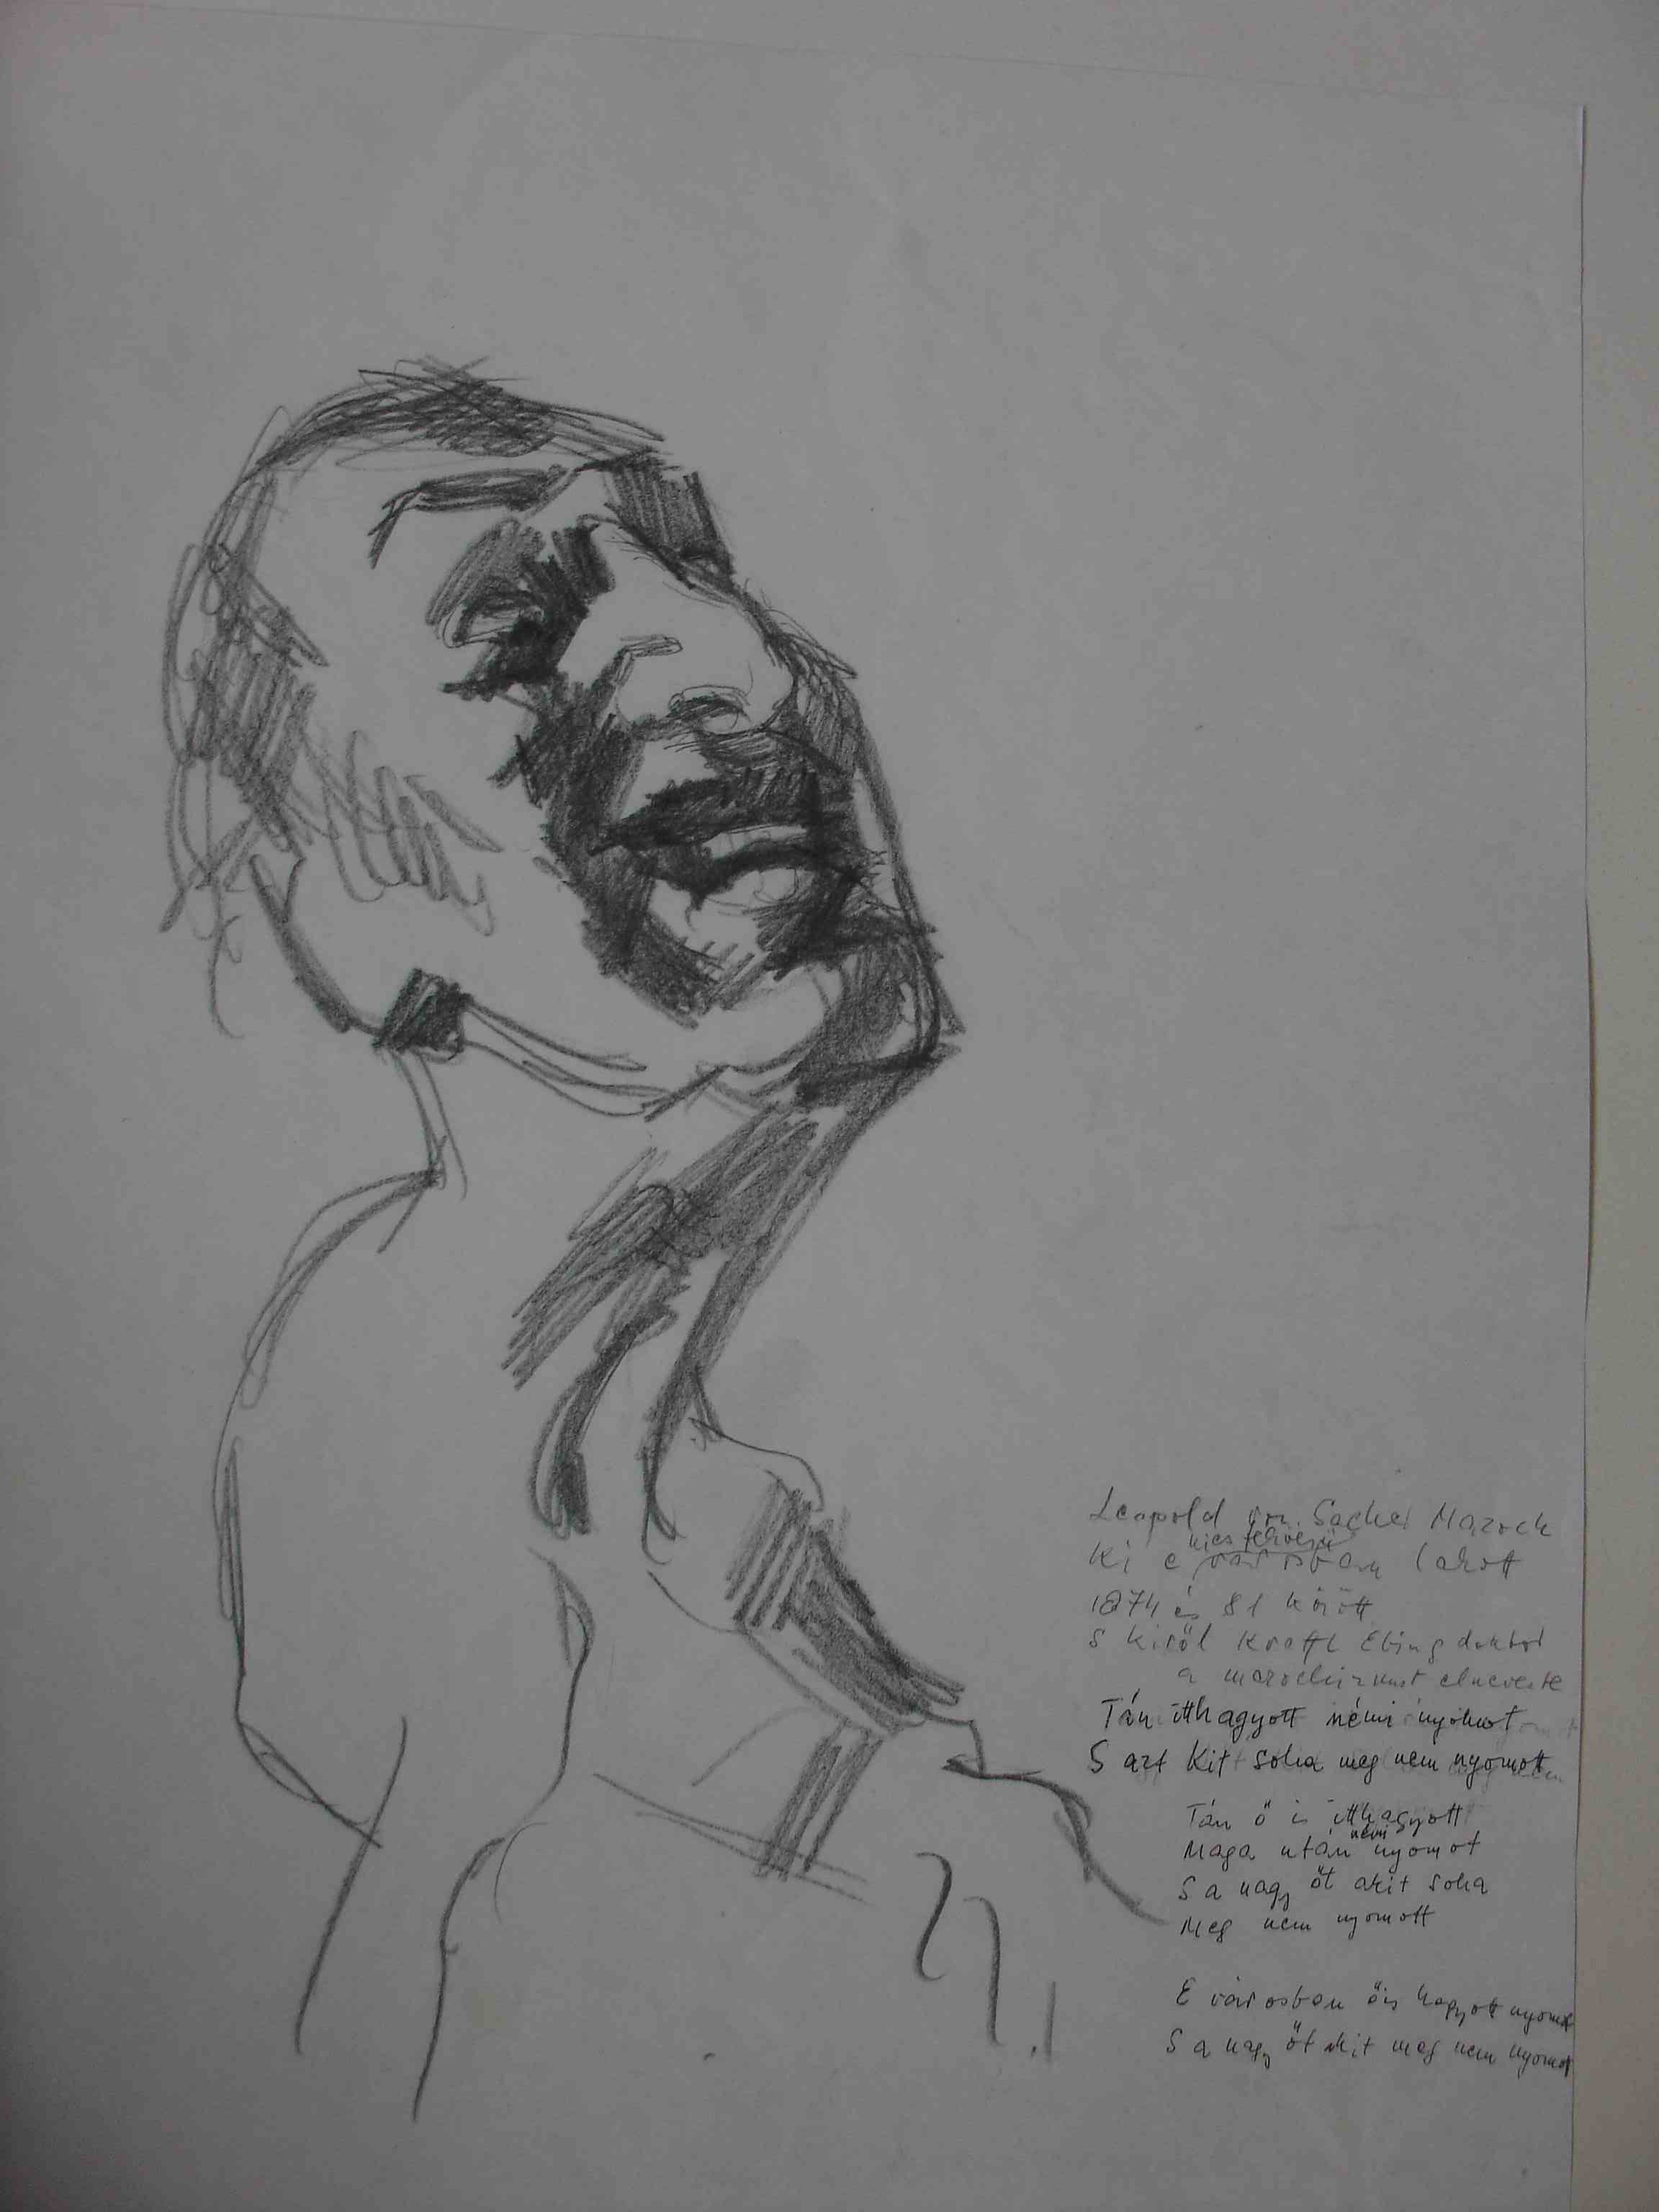 Leopold von Sacher Masoch
Ki e városban lakott
1874 és 81 között
S kiről Krafft Ebing doktor
a mazochizmust elnevezte
Tán itthagyott némi nyomot
S azt kit soha meg nem nyomott
Tán ő is itthagyott
Maga után némi nyomot
S a nagy őt akit soha
Meg nem nyomott
E városban őis hagyott nyomot
S a nagy öt kit meg nem nyomot